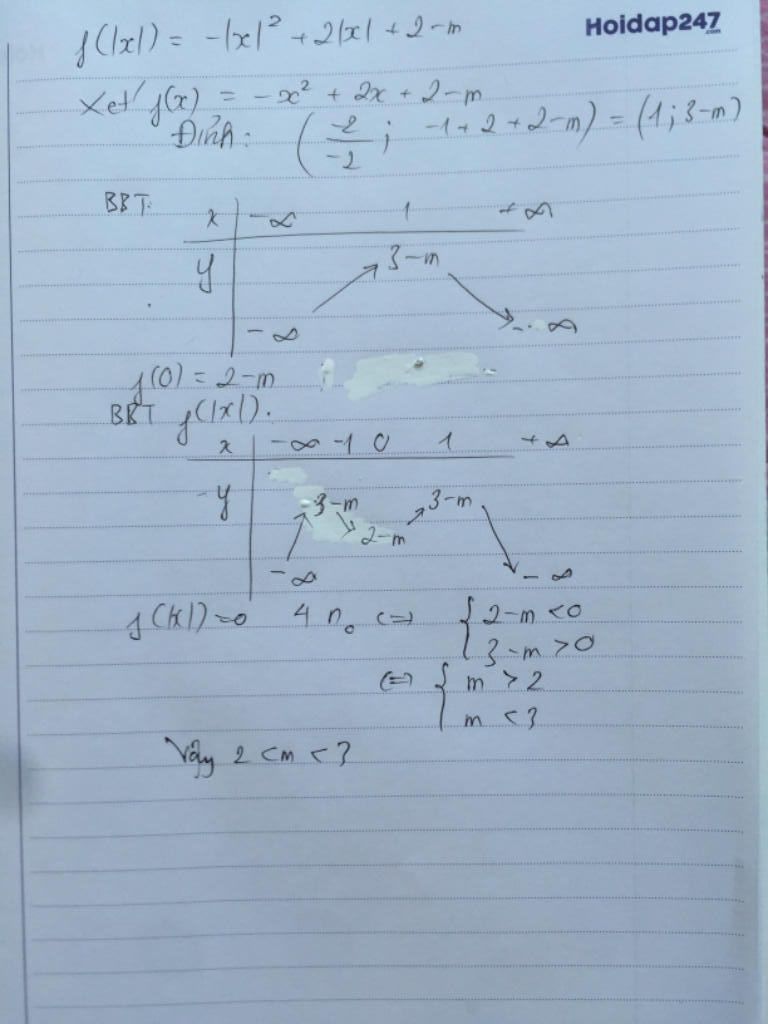 Hoidap247.com
f(|x|) = -|x|² + 2|x| + 2-m
Xét f(x) = -x² + 2x + 2-m
Đỉnh: (-2/-2; -1+2+2-m) = (1; 3-m)
BBT:
x -∞ 1 +∞
y 3-m
-∞ -∞
f(0) = 2-m
BBT f(|x|).
x -∞ -1 0 1 +∞
y 3-m 3-m
2-m
-∞ -∞
f(|x|)=0 4 n₀ <=> { 2-m <0
3-m >0
<=> { m > 2
m < 3
Vậy 2 < m < 3